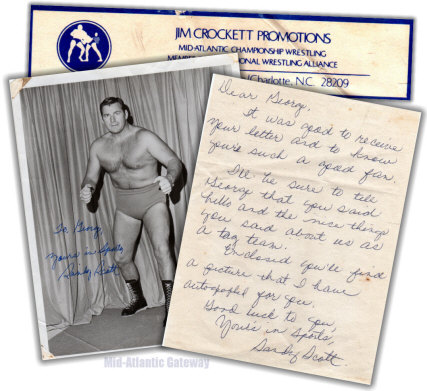 JIM CROCKETT PROMOTIONS
MID-ATLANTIC CHAMPIONSHIP WRESTLING
ONAL WRESTLING ALLIANCE
Charlotte, N.C. 28209
Dear George,
It was good to receive
your letter and to know
you're such a good fan.
I'll be sure to tell
George that you said
hello and the nice things
you said about us as
a tag team.
Enclosed you'll find
a picture that I have
autographed for you.
Good luck to you,
Yours in Sports,
Sandy Scott
To George
Yours in Sports
Sandy Scott
Mid-Atlantic Gateway